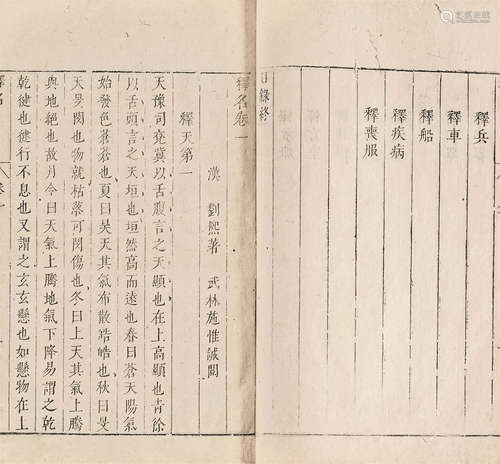 釋兵
釋車
釋船
釋疾病
釋喪服
目錄終
釋名卷一
漢 劉熙著 武林施惟誠閱
釋天第一
天豫司兗冀以舌腹言之天顯也在上高顯也青徐
以舌頭言之天垣也垣然高而遠也春曰蒼天陽氣
始發色蒼蒼也夏曰昊天其氣布散皓皓也秋曰旻
天旻閔也物就枯落可閔傷也冬曰上天其氣上騰
與地絕也故月令曰天氣上騰地氣下降易謂之乾
乾健也健行不息也又謂之玄玄懸也如懸物在上
釋名
卷一